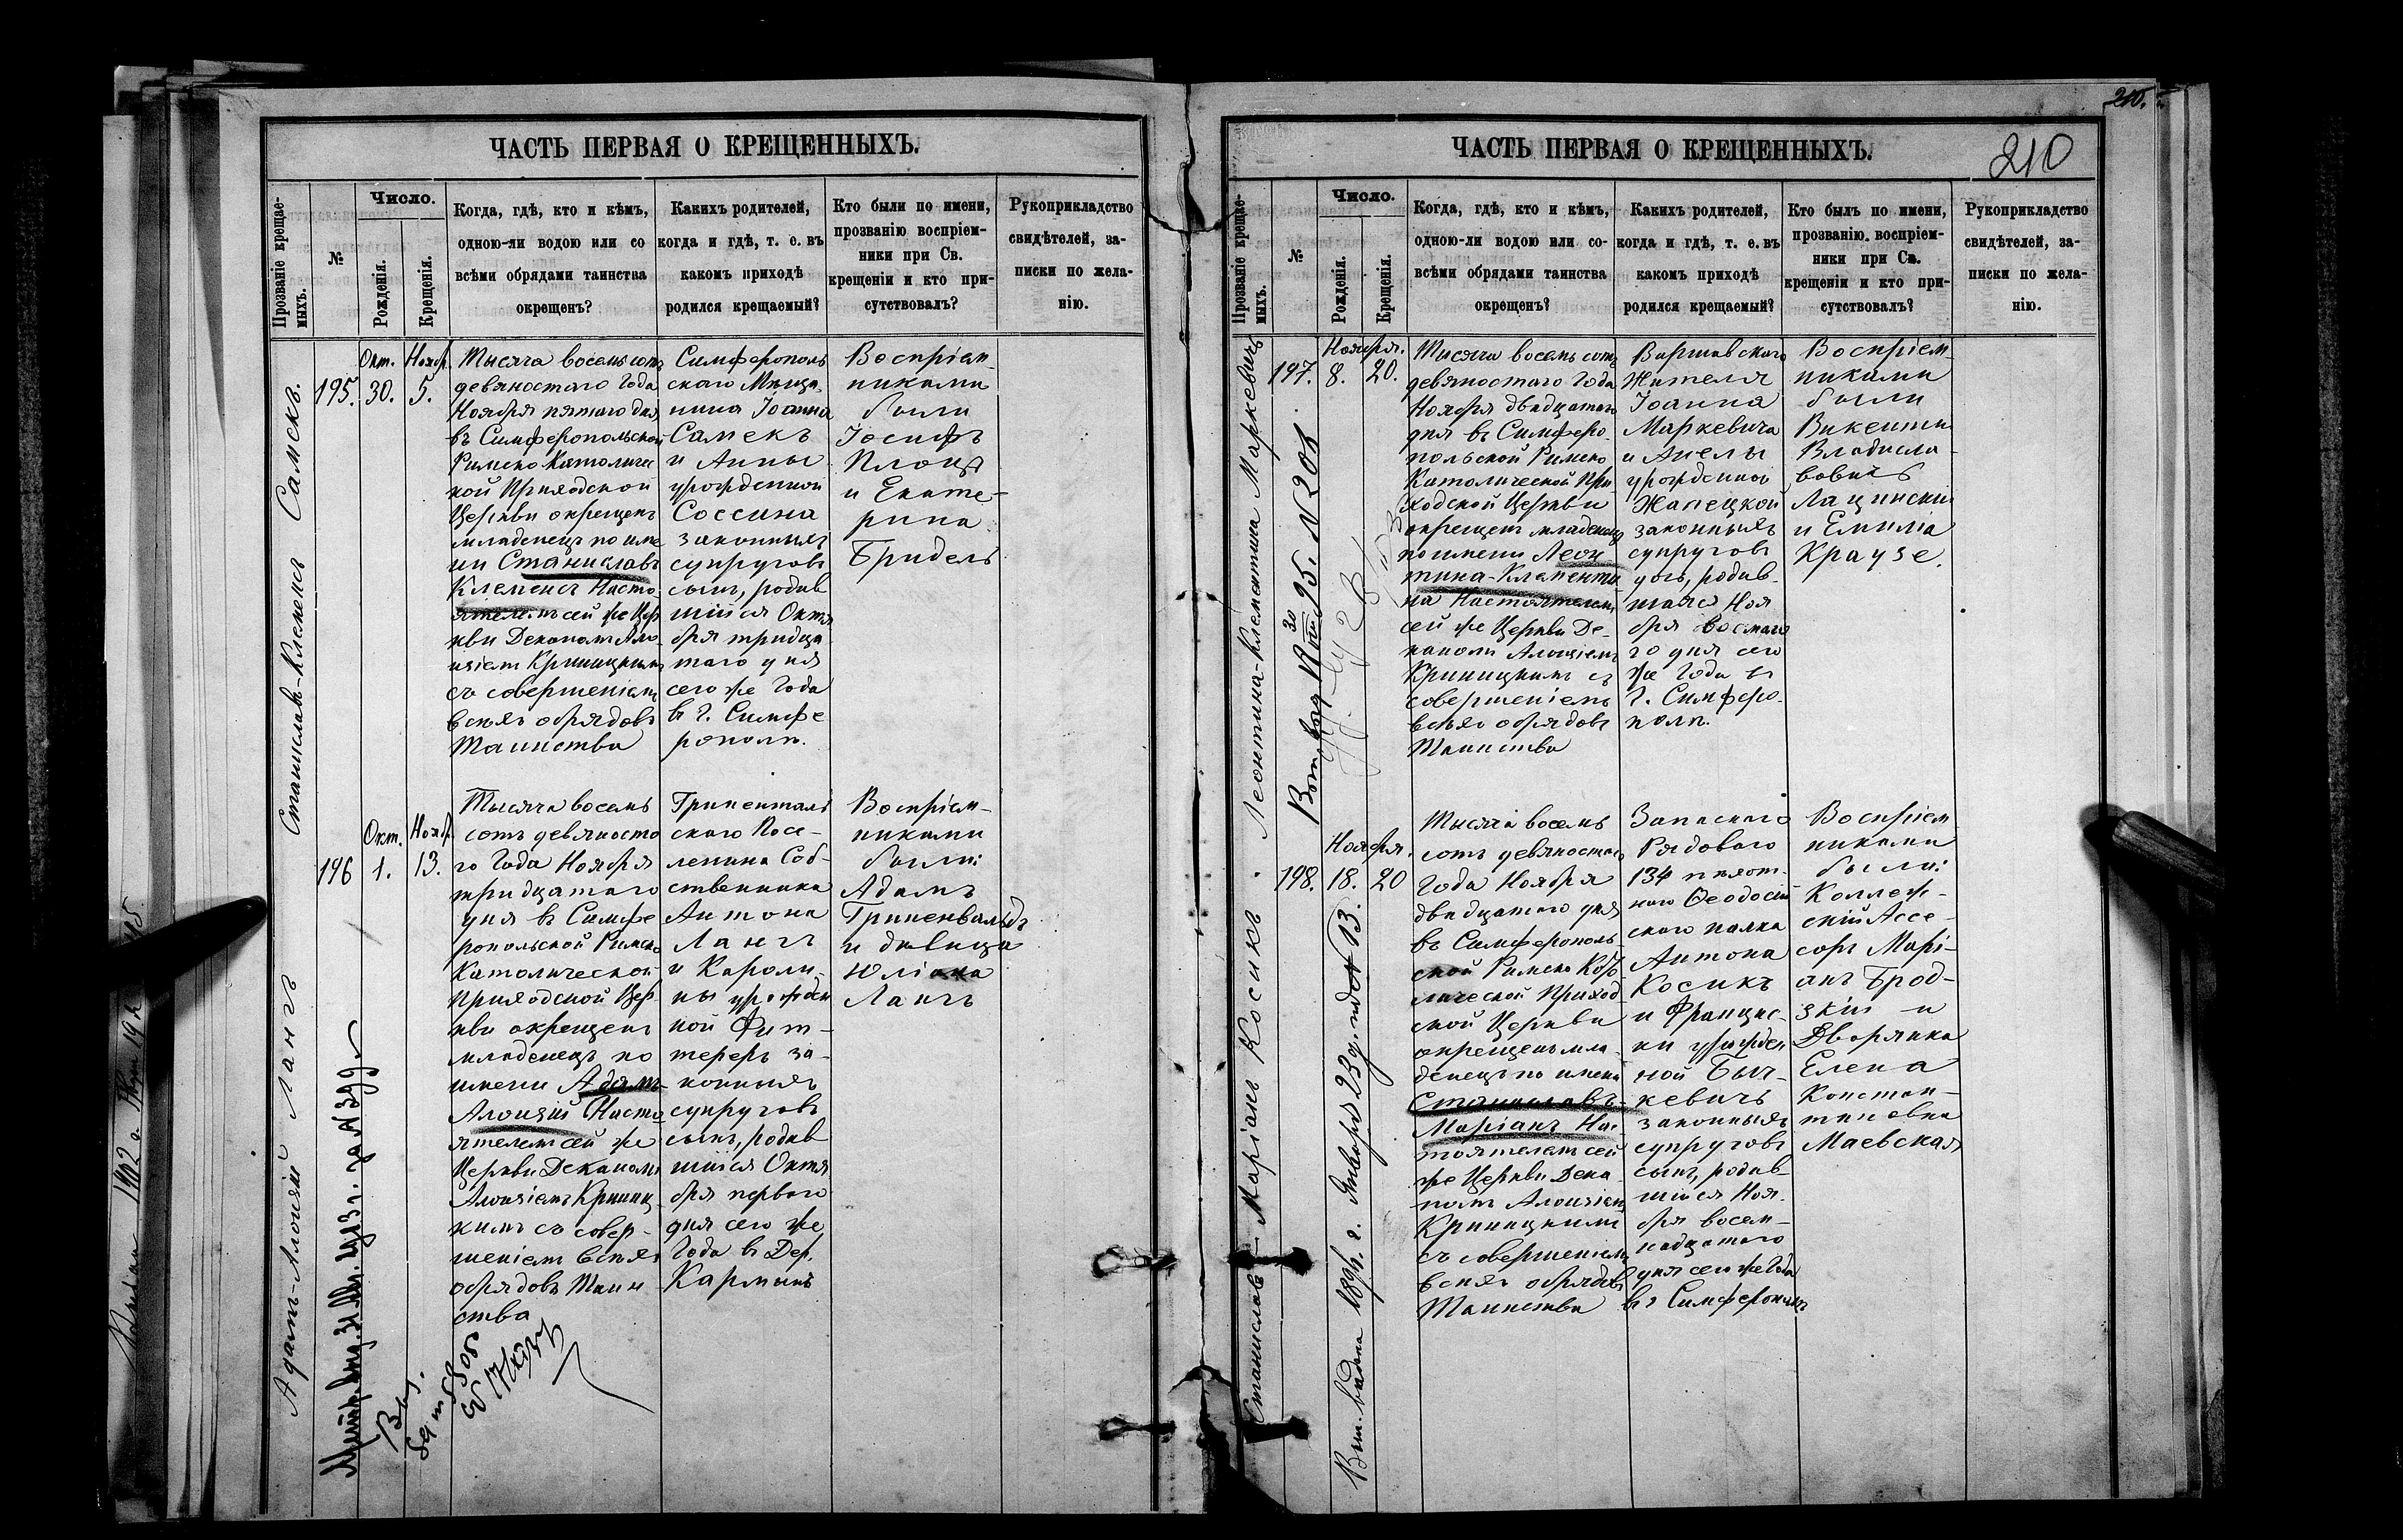 ЧАСТЬ ПЕРВАЯ О КРЕЩЕННЫХЪ.
Прозваніе крещае-
мыхъ.
№
Число.
Рожденія.
Крещенія.
Когда, гдѣ, кто и кѣмъ,
одною-ли водою или со
всѣми обрядами таинства
окрещенъ?
Какихъ родителей,
когда и гдѣ, т. е. въ
какомъ приходѣ
родился крещаемый?
Кто были по имени,
прозванію воспріем-
ники при Св.
крещеніи и кто при-
сутствовалъ?
Рукоприкладство
свидѣтелей, за-
писки по жела-
нію.
Станиславъ-Клеменсъ Самекъ.
195.
Окт.
30.
Ноябр.
5.
Тысяча восемьсотъ
девяностаго Года
Ноября пятаго дня
въ Симферопольской
Римско Католичес
кой Приходской
Церкви окрещенъ
младенецъ по име
ни Станиславъ
Клеменсъ Насто
ятелемъ сей же Цер
кви Деканомъ Ало
изіемъ Криницкимъ
съ совершеніемъ
всѣхъ обрядовъ
Таинства
Симферополь
скаго Мѣща
нина Іоанна
Самекъ
и Анны
урожденной
Соссина
законныхъ
супруговъ
сынъ, родив
шійся Октя
бря тридца
таго дня
сего же Года
въ г. Симфе
рополѣ.
Воспріем
никами
были
Іосифъ
Плоцъ
и Екате-
рина
Бридель
Адамъ-Алоизій Лангъ
196
Окт.
1.
Нояб.
13.
Тысяча восемь
сотъ девяносто
го Года Ноября
тридцатаго
дня въ Симфе
ропольской Римско
Католической
Приходской Цер
кви окрещенъ
младенецъ по
имени Адамъ-
Алоизій Насто
ятелемъ сей же
Церкви Деканомъ
Алоизіемъ Криниц
кимъ съ совер-
шеніемъ всѣхъ
обрядовъ Таин
ства
скаго Посе-
лянина Соб-
ственника
Антона
Лангъ
и Кароли-
ны урожден
ной Фит-
тереръ за-
конныхъ
супруговъ
сынъ, родив
шійся Октя
бря перваго
дня сего же
Года въ Дер.
Воспріем-
никами
были:
Адамъ
и дѣвица
Юліана
Лангъ
210.
ЧАСТЬ ПЕРВАЯ О КРЕЩЕННЫХЪ.
210
Прозваніе крещае-
мыхъ.
№
Число.
Рожденія.
Крещенія.
Когда, гдѣ, кто и кѣмъ,
одною-ли водою или со-
всѣми обрядами таинства
окрещенъ?
Какихъ родителей,
когда и гдѣ, т. е. въ
какомъ приходѣ
родился крещаемый?
Кто былъ по имени,
прозванію. воспріем-
ники при Св.
крещеніи и кто при-
сутствовалъ?
Рукоприкладство
свидѣтелей, за-
писки по жела-
нію.
Леонтина-Клементина Маркевичъ
197.
Ноября.
8.
20.
Тысяча восемь сотъ
девяностаго Года
Ноября двадцатаго
дня въ Симферо-
польской Римско
Католической При
ходской Церкви
окрещенъ младенецъ
по имени Леон
тина-Клементи
на Настоятелемъ
сей же Церкви Де-
каномъ Алоизіемъ
Криницкимъ съ
совершеніемъ
всѣхъ обрядовъ
Таинства
Варшавскаго
Жителя
Іоанна
Маркевича
и Анелы
урожденной
законныхъ
супруговъ
дочь, родив-
шаяся Ноя
бря восмаго
го дня сего
же Года въ
г. Симферо-
полѣ.
Воспріем-
никами
были
Викентій
Владисла-
вовичъ
Лащинскій
и Емилія
Краузе.
Станиславъ-Маріанъ Косикъ
198.
Ноября.
18.
20
Тысяча восемь
сотъ девяностаго
Года Ноября
двадцатаго дня
въ Симферополь-
ской Римско Като
лической Приход
ской Церкви
окрещенъ мла-
денецъ по имени
Станиславъ-
Маріанъ Нас-
тоятелемъ сей
же Церкви Дека-
номъ Алоизіемъ
Криницкимъ
съ совершеніемъ
всѣхъ обрядовъ
Таинства
Запаснаго
Рядоваго
134 пѣхот-
наго Ѳеодосій
скаго полка
Антона
Косикъ
и Францис-
ки урожден
ной Быч-
кевичъ
законныхъ
супруговъ
сынъ, родив-
шійся Ноя-
бря восем-
надцатаго
дня сего же Года
въ г. Симферополѣ
Воспріем
никами
были:
Коллеж-
скій Ассе-
соръ Марі-
анъ Брод-
зкій и
Дворянка
Елена
Констан-
тиновна
Маевская